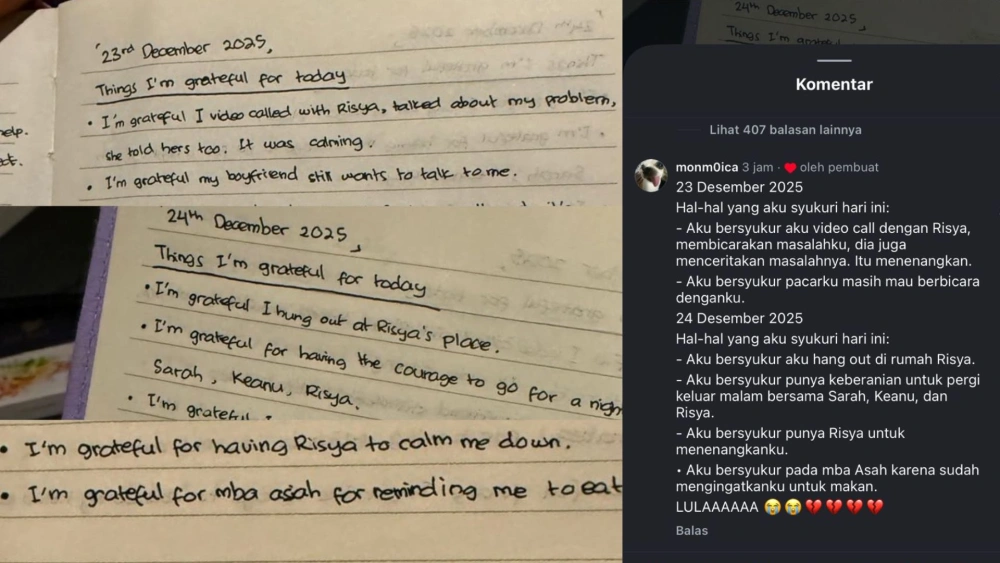 elp.
ct.
'23rd December 2025,
Things I'm grateful for today
• I'm grateful I video called with Risya, talked about my problem,
she told hers too. It was calming.
• I'm grateful my boyfriend still wants to talk to me.
24th December 2025,
Things I'm grateful for today
• I'm grateful I hung out at Risya's place.
• I'm grateful for having the courage to go for a nigh
Sarah, Keanu, Risya.
• I'm grateful
• I'm grateful for having Risya to calm me down.
• I'm grateful for mba asiah for reminding me to eat
24th December 2025,
Things I'm grateful
Komentar
Lihat 407 balasan lainnya
monm0ica 3 jam · ❤️ oleh pembuat
23 Desember 2025
Hal-hal yang aku syukuri hari ini:
- Aku bersyukur aku video call dengan Risya,
membicarakan masalahku, dia juga
menceritakan masalahnya. Itu menenangkan.
- Aku bersyukur pacarku masih mau berbicara
denganku.
24 Desember 2025
Hal-hal yang aku syukuri hari ini:
- Aku bersyukur aku hang out di rumah Risya.
- Aku bersyukur punya keberanian untuk pergi
keluar malam bersama Sarah, Keanu, dan
Risya.
- Aku bersyukur punya Risya untuk
menenangkanku.
• Aku bersyukur pada mba Asah karena sudah
mengingatkanku untuk makan.
LULAAAAAA 😭😭💔💔💔💔
Balas